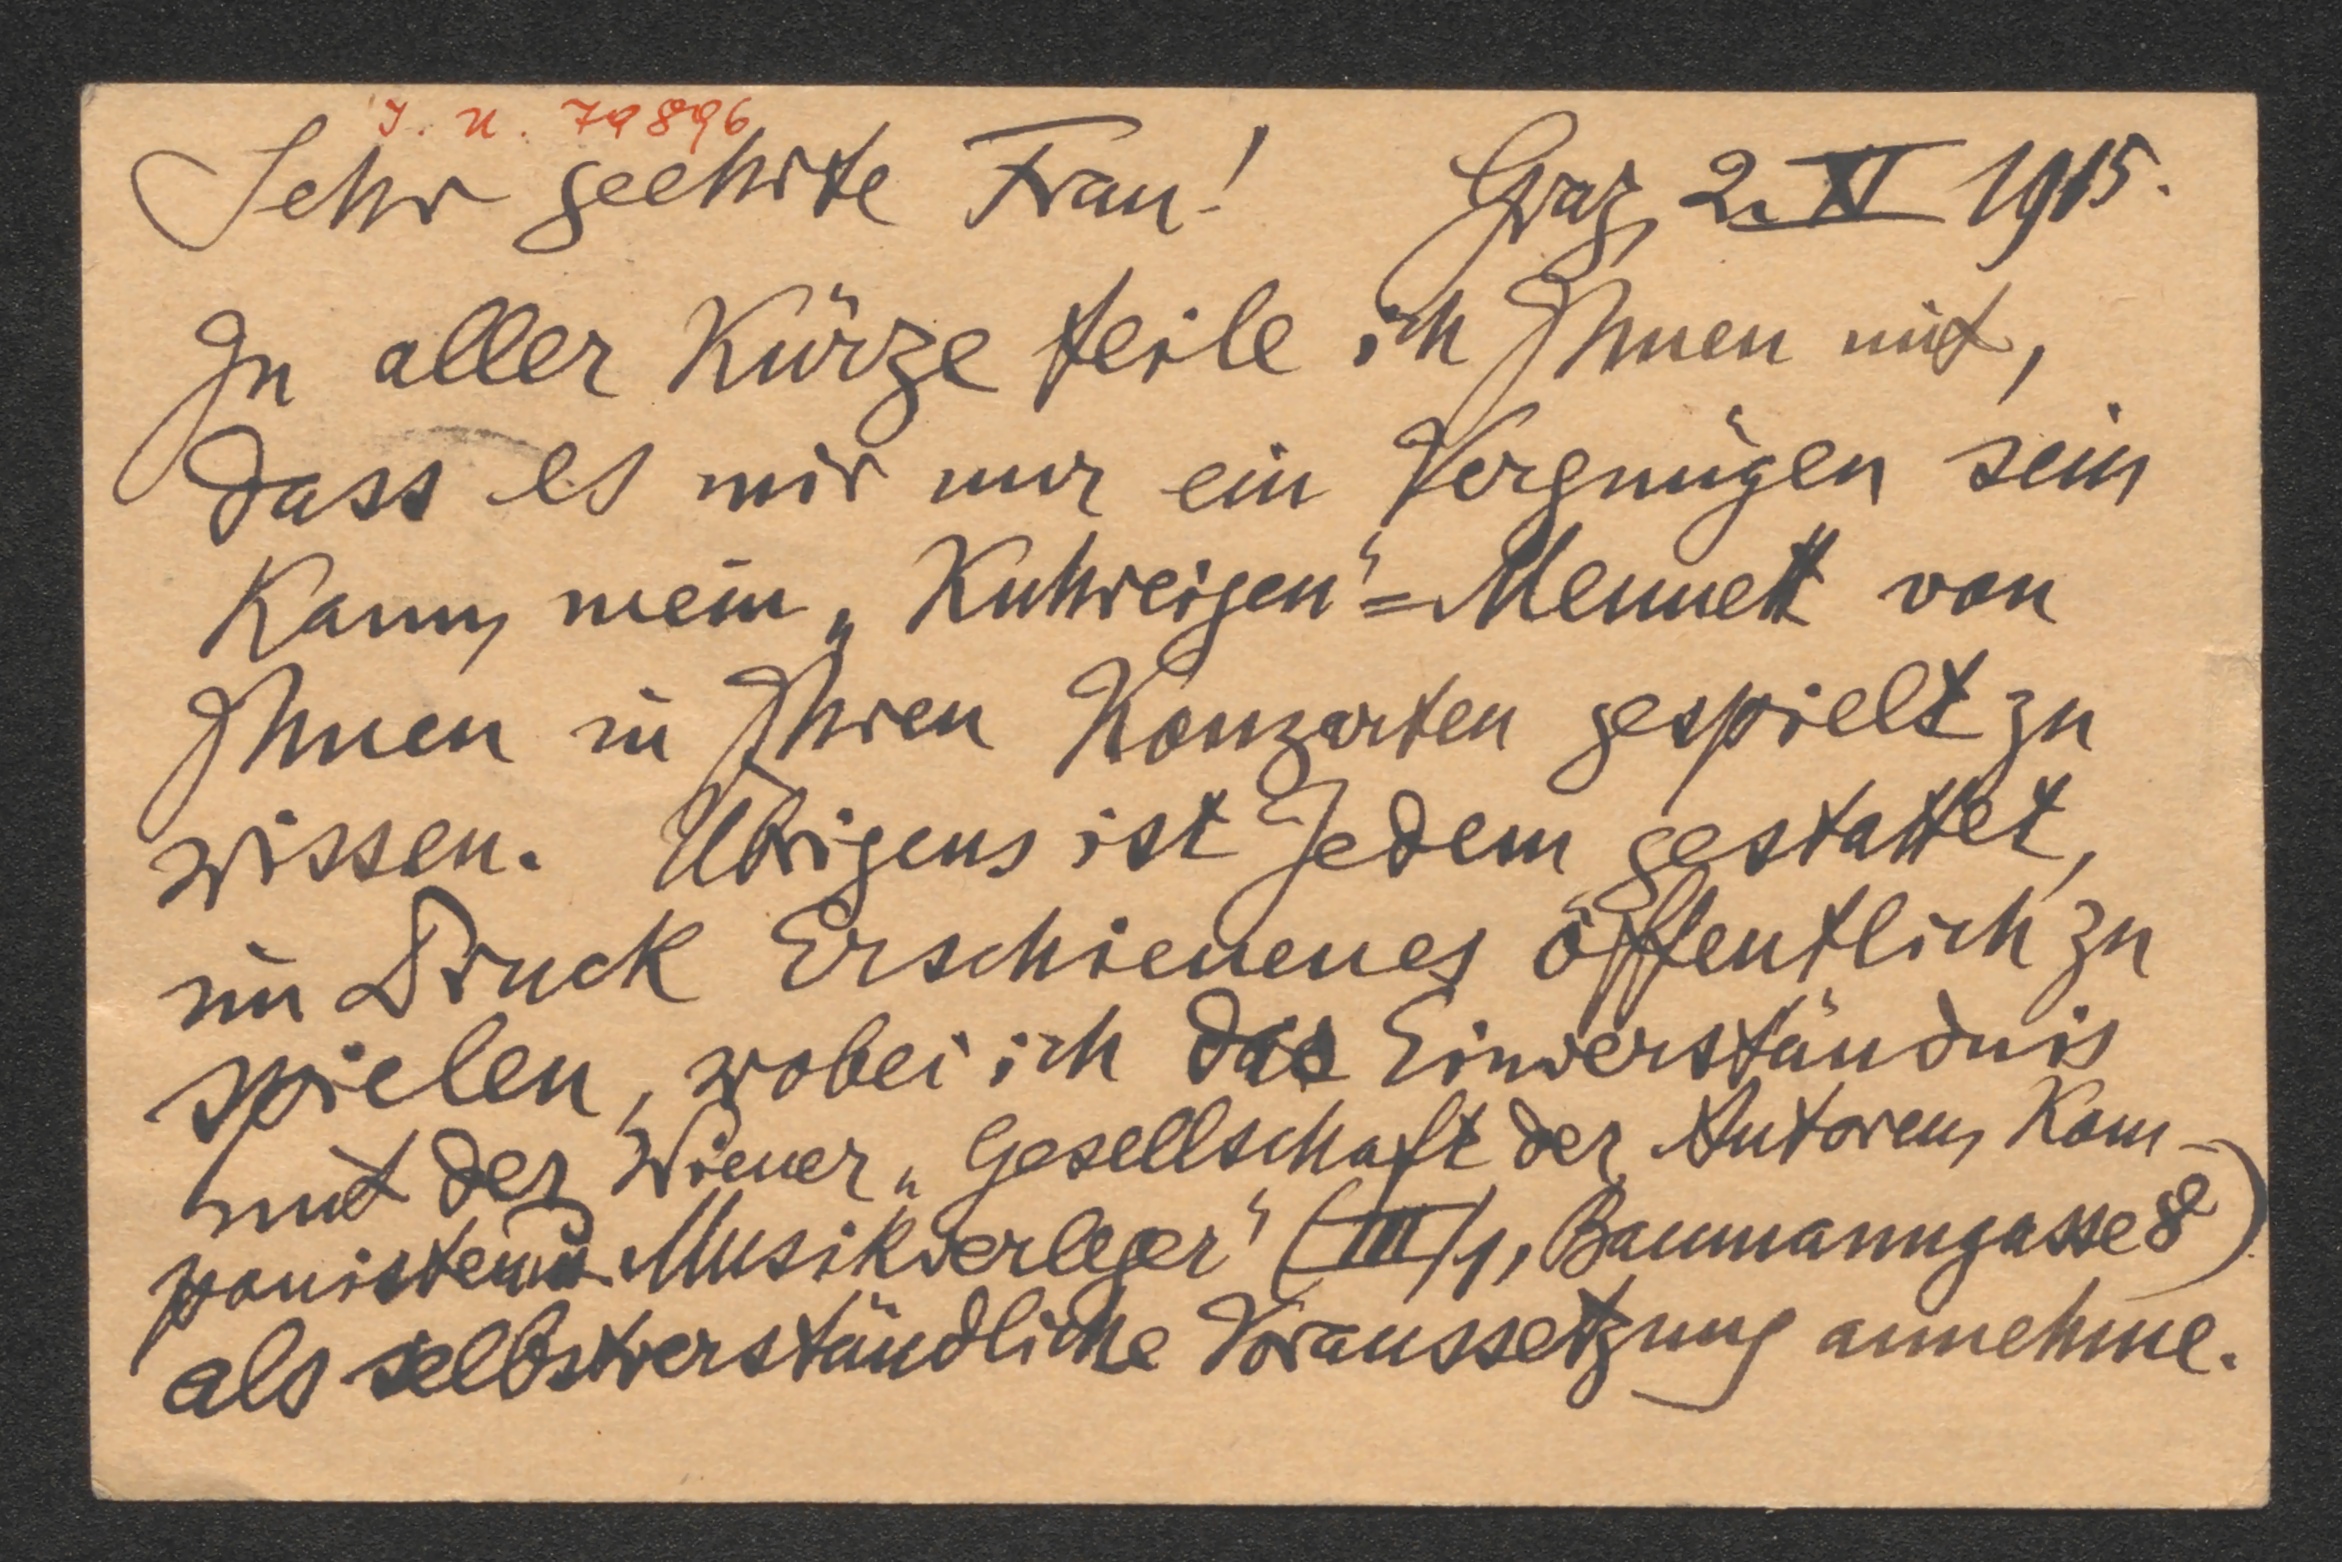 I. N. 79896
Sehr geehrte Frau! Graz, 2. XI 1915.
In aller Kürze teile ich Ihnen mit,
dass es mir nur ein Vergnügen sein
kann, mein „Kuhreigen"=Menuett von
Ihnen in Ihren Konzerten gespielt zu
wissen. Übrigens ist Jedem gestattet,
im Druck Erschienenes öffentlich zu
spielen, wobei ich das Einverständnis
mit der Wiener „Gesellschaft der Autoren, Kom-
ponisten u Musikverleger" (III/1, Baumanngasse 8)
als selbstverständliche Voraussetzung annehme.